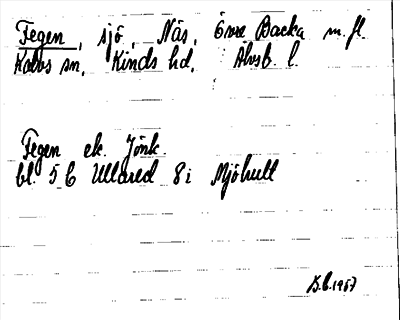 Fegen, sjö, Näs, Övre Backa m. fl.
Kalvs sn, Kinds hd, Älvsb. l.
Fegen ek. Jönk.
bl. 5 C Ullared 8 i Mjöhult
B.C. 1967